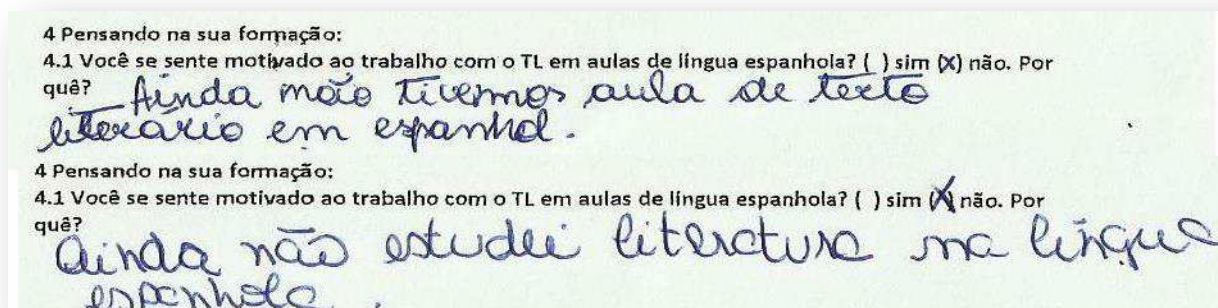 4 Pensando na sua formação:
4.1 Você se sente motivado ao trabalho com o TL em aulas de língua espanhola? ( ) sim (X) não. Por
quê? Ainda não tivemos aula de texto
literário em espanhol.
4 Pensando na sua formação:
4.1 Você se sente motivado ao trabalho com o TL em aulas de língua espanhola? ( ) sim (X) não. Por
quê?
Ainda não estudei literatura na língua
espanhola.